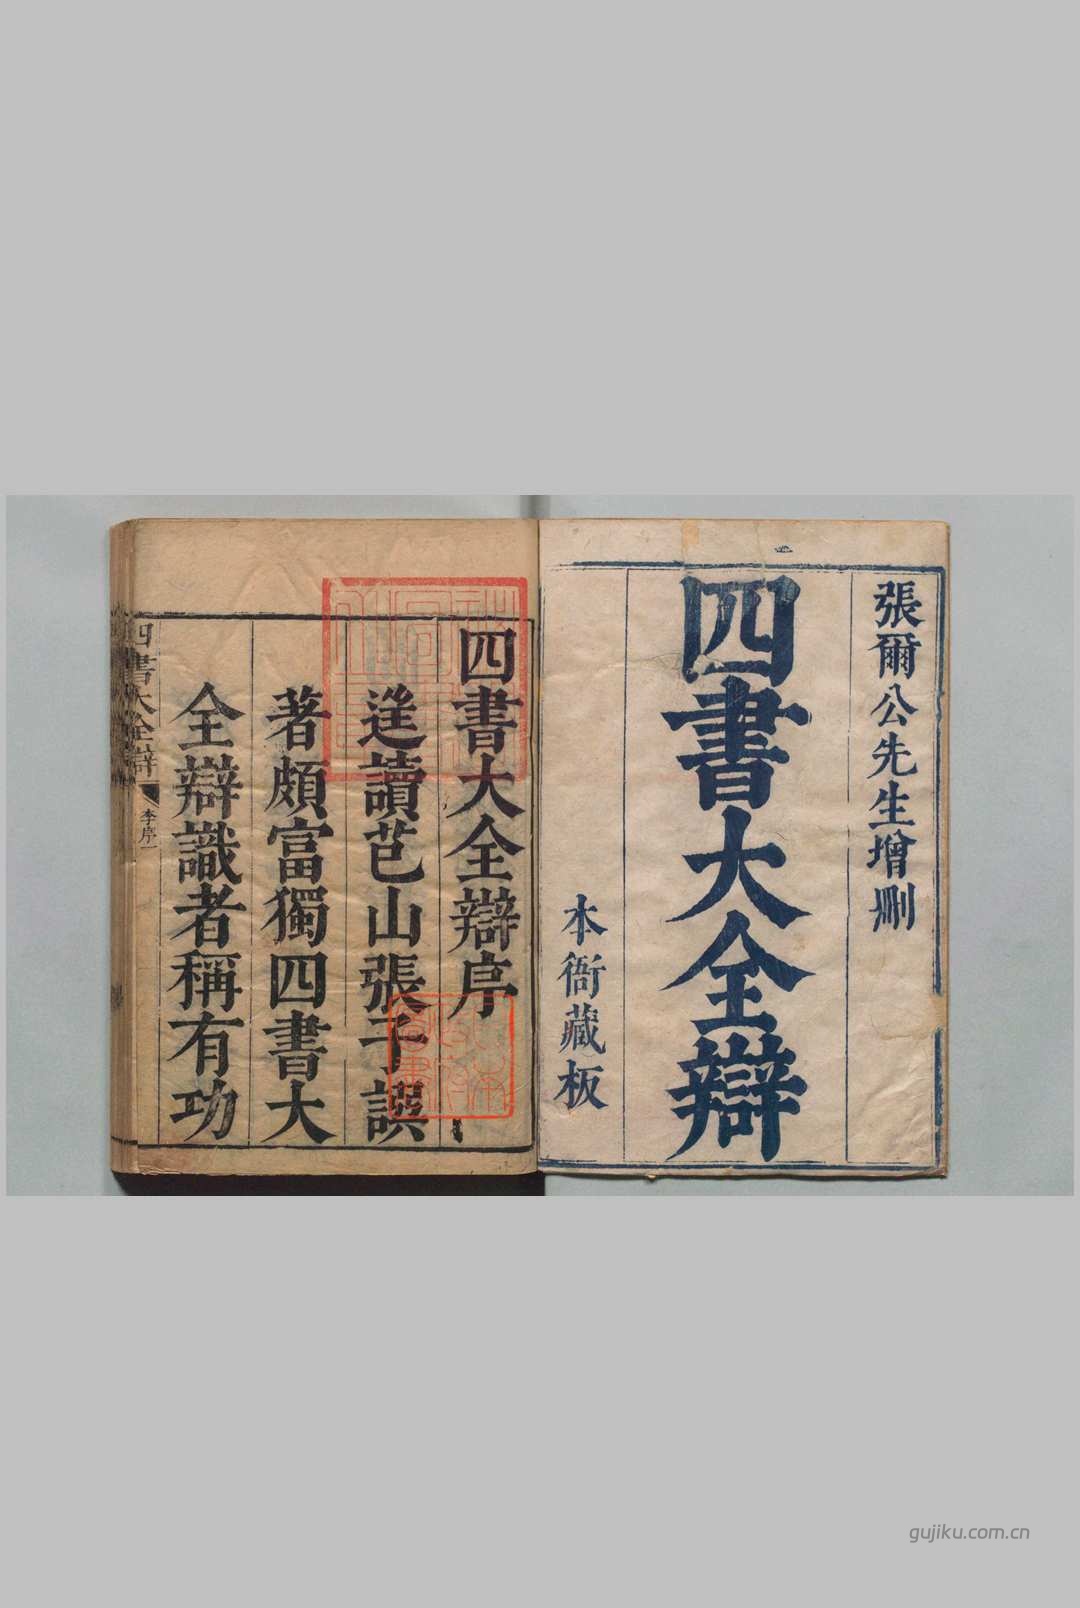 張爾公先生增刪
四書大全辯
本衙藏板
四書大全辯序
進讀芑山張子譔
著頗富獨四書大
全辯識者稱有功
四書大全辯
李序一
gujiku.com.cn